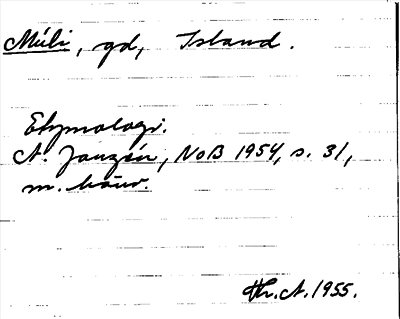 Múli, gd, Island.
Etymologi.
A. Janzén, NoB 1954, s. 31,
m. hänv.
Th. A. 1955.